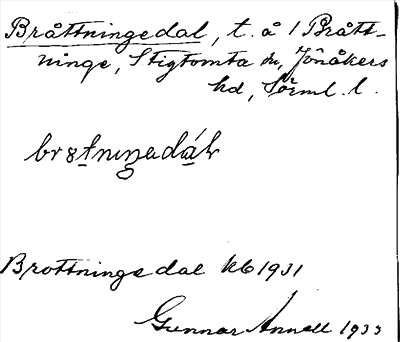 Bråttningedal, t. å 1 Brått-
ninge, Stigtomta sn, Jönåkers
hd, Sörml. l.
Brottningedal kb 1931
Gunnar Annell 1933